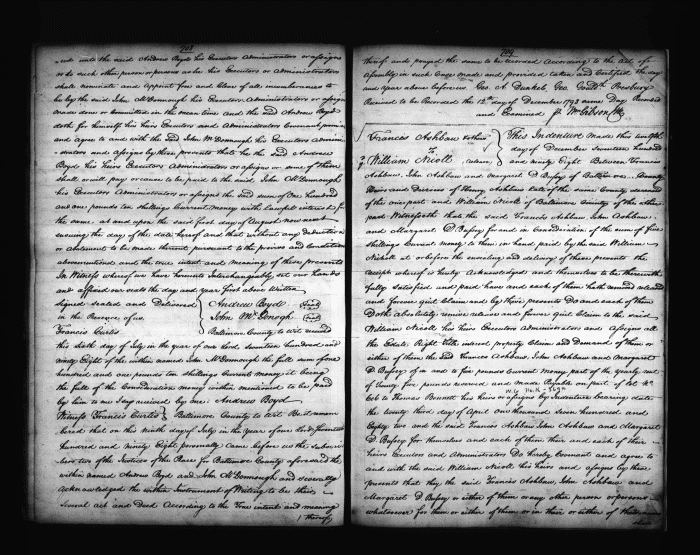 708
and unto the said Andrew Boyd his Executors Administrators or assigns
or to such other person or persons as he his Executors or Administrators
shall nominate and appoint free and Clear of all incumbrances to
be by the said John McDonnough his Executors Administrators or assigns
made done or committed in the mean time and the said Andrew Boyd
doth for himself his Heirs Executors and Administrators Covenant promise
and agree to and with the said John McDonnough his Executors Admini
strators and assigns by these presents that he the said Andrew
Boyd his Heirs Executors Administrators or assigns or some of them
shall or will pay or cause to be paid to the said John McDonnough
his Executors Administrators or assigns the said sum of One hundred
and one pounds ten shillings Current money with Lawful interest for
the same at and upon the said first day of August now next
ensuing the day of the date hereof and that without any deduction
or abatement to be made thereout pursuant to the proviso and Condition
abovementioned and the true intent and meaning of these presents
In Witness whereof we have hereunto interchangeably set our hands
and affixed our seals the day and year first above Written
Signed sealed and Delivered
in the Presence of us
Francis Curtis
Andrew Boyd (Seal)
John McDonogh (Seal)
Baltimore County to wit received
this sixth day of July in the year of our Lord seventeen hundred and
ninety Eight of the within named John McDonnough the full sum of one
hundred and one pounds ten shillings Current money it being
the full of the Consideration money within mentioned to be paid
by him to me I say received by me Andrew Boyd
Witness Francis Curtis
Baltimore County to Wit Be it remem
bered that on this Ninth day of July in the Year of our Lord Seventeen
hundred and ninety Eight personally came before us the subscri
bers two of the Justices of the Peace for Baltimore County aforesaid the
within named Andrew Boyd and John McDonnough and severally
acknowledged the within Instrument of Writing to be their
several act and Deed According to the True intent and meaning
thereof
709
thereof and prayed the same to be recorded According to the act of
Assembly in such Case made and provided taken and Certified the day
and year above before us Geo. A Dunkel Geo. Presbury
Received to be Recorded the 12th day of December 1798 same Day Recorded
and Examined Wm Gibson Clk
Francis Ashbaw & others
To
William Nicoll
This Indenture Made this twelfth
day of December seventeen hundred
and ninety Eight Between Francis
Ashbaw, John Ashbaw and Margaret D Bussey of Baltimore County
Heirs and Devisees of Henry Ashbaw late of the same County deceased
of the one part and William Nicoll of Baltimore County of the other
part Witnesseth that the said Francis Ashbaw John Ashbaw,
and Margaret D Bussey for and in Consideration of the sum of five
shillings Current money to them in hand paid by the said William
Nicholl at or before the ensealing and delivery of these presents the
receipt whereof is hereby Acknowledged and themselves to be therewith
fully satisfied and paid have and each of them hath remised released
and forever quit Claim and by these presents Do and each of them
Doth absolutely remise release and forever quit Claim to the said
William Nicoll his Heirs Executors Administrators and Assigns all
the Estate Right Title interest property Claim and Demand of them or
either of them the said Francis Ashbaw, John Ashbaw and Margaret
D Bussey of in and to five pounds Current money part of the yearly rent
of twenty five pounds reserved and made payable on part of Lot No
to Thomas Bennett his Heirs or assigns by Indenture bearing date
the twenty third day of April one thousand seven hundred and
Eighty two and the said Francis Ashbaw John Ashbaw and Margaret
D Bussey for themselves and each of them their and each of their
Heirs Executors and Administrators Do hereby Covenant and agree to
and with the said William Nicoll his Heirs and Assigns by these
presents that they the said Francis Ashbaw, John Ashbaw and
Margaret D Bussey or either of them or any other person or persons
whatsoever for them or either of them or in their or either of their names